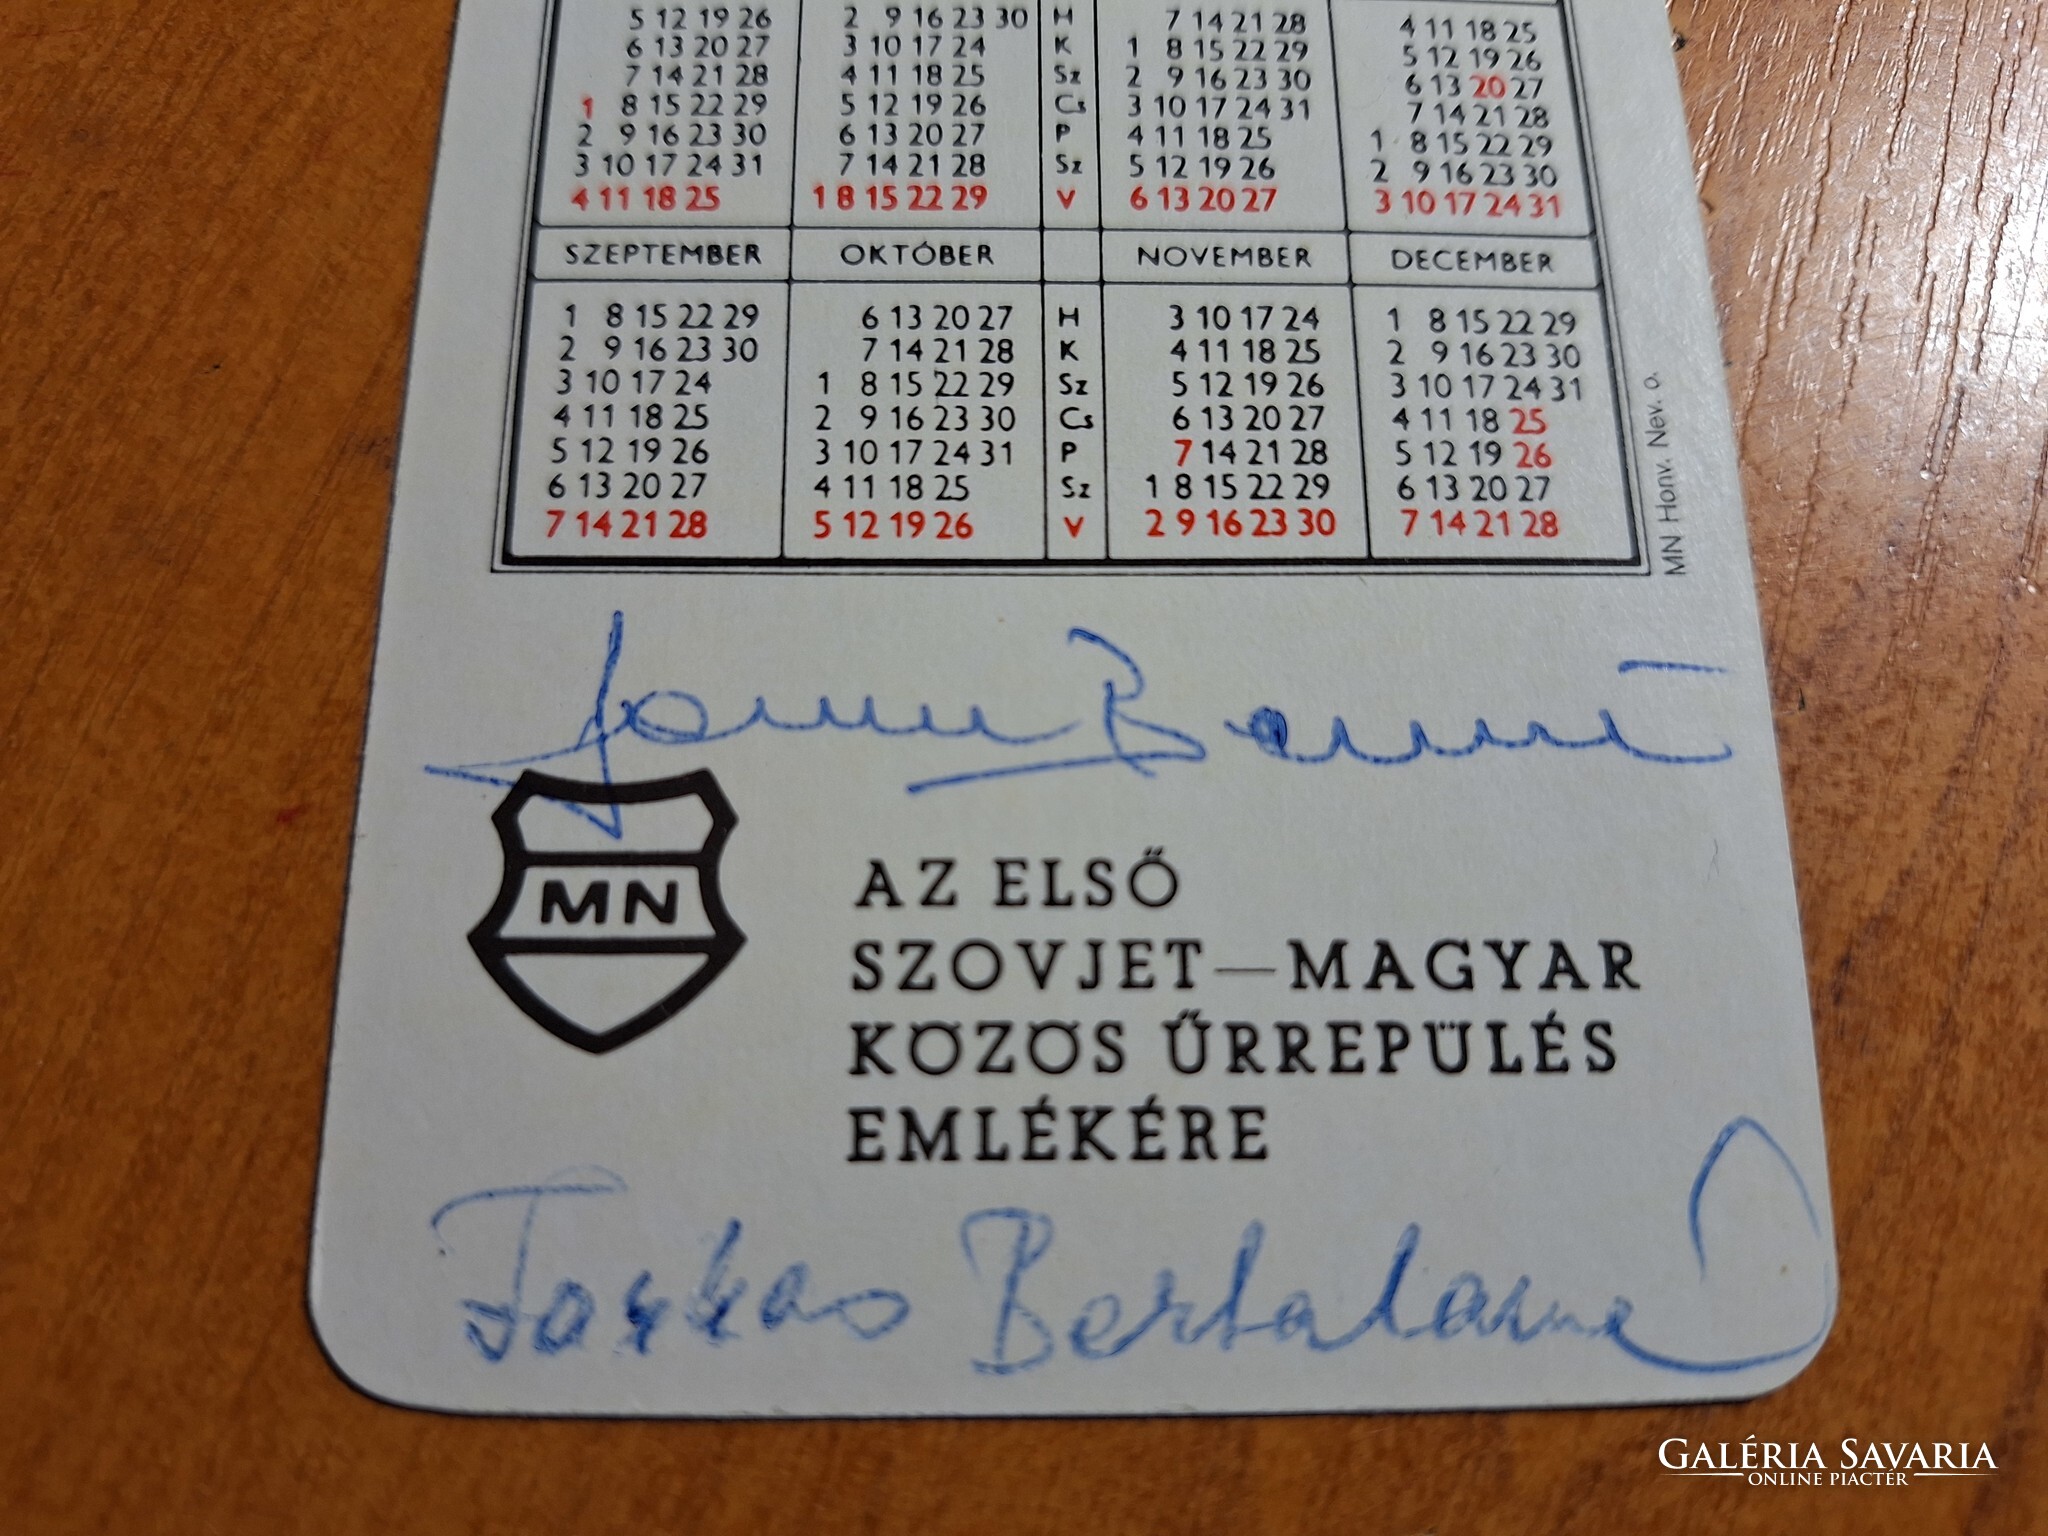 5 12 19 26 2 9 16 23 30 H 7 14 21 28 4 11 18 25
6 13 20 27 3 10 17 24 K 1 8 15 22 29 5 12 19 26
7 14 21 28 4 11 18 25 Sz 2 9 16 23 30 6 13 20 27
1 8 15 22 29 5 12 19 26 Cs 3 10 17 24 31 7 14 21 28
2 9 16 23 30 6 13 20 27 P 4 11 18 25 1 8 15 22 29
3 10 17 24 31 7 14 21 28 Sz 5 12 19 26 2 9 16 23 30
4 11 18 25 1 8 15 22 29 V 6 13 20 27 3 10 17 24 31
SZEPTEMBER OKTÓBER NOVEMBER DECEMBER
1 8 15 22 29 6 13 20 27 H 3 10 17 24 1 8 15 22 29
2 9 16 23 30 7 14 21 28 K 4 11 18 25 2 9 16 23 30
3 10 17 24 1 8 15 22 29 Sz 5 12 19 26 3 10 17 24 31
4 11 18 25 2 9 16 23 30 Cs 6 13 20 27 4 11 18 25
5 12 19 26 3 10 17 24 31 P 7 14 21 28 5 12 19 26
6 13 20 27 4 11 18 25 Sz 1 8 15 22 29 6 13 20 27
7 14 21 28 5 12 19 26 V 2 9 16 23 30 7 14 21 28
MN Honv. Nev. o.
MN
AZ ELSŐ
SZOVJET—MAGYAR
KÖZÖS ŰRREPÜLÉS
EMLÉKÉRE
Farkas Bertalan
GALÉRIA SAVARIA
ONLINE PIACTÉR